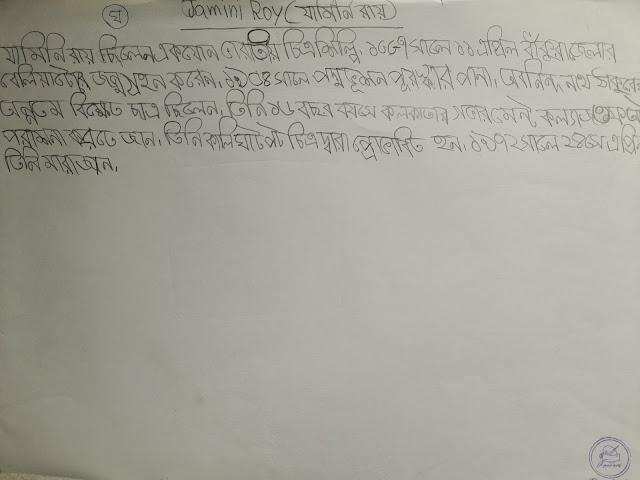 ঘ
Jamini Roy (যামিনি রায়)
যামিনি রায় ছিলেন একজন ভারতীয় চিত্রশিল্পি, ১৮৮৭ সালে ১১ এপ্রিল বাঁকুরা জেলার
বেলিয়াতোর জন্মগ্রহন করেন, ১৯৫৪ সালে পদ্মভূষন পুরস্কার পান, অবনিন্দ্র নাথ ঠাকুরের
অন্যতম বিক্ষেত ছাত্র ছিলেন, তিনি ১৬ বছর বয়সে কলকাতার গভারমেন্ট কলেজ
পরাশোনা করতে জান, তিনি কালিঘাট পট চিত্র দ্বারা প্রোভাবিত হন, ১৯৭২ সালে ২৪শে এপ্রিল
তিনি মারা জান,